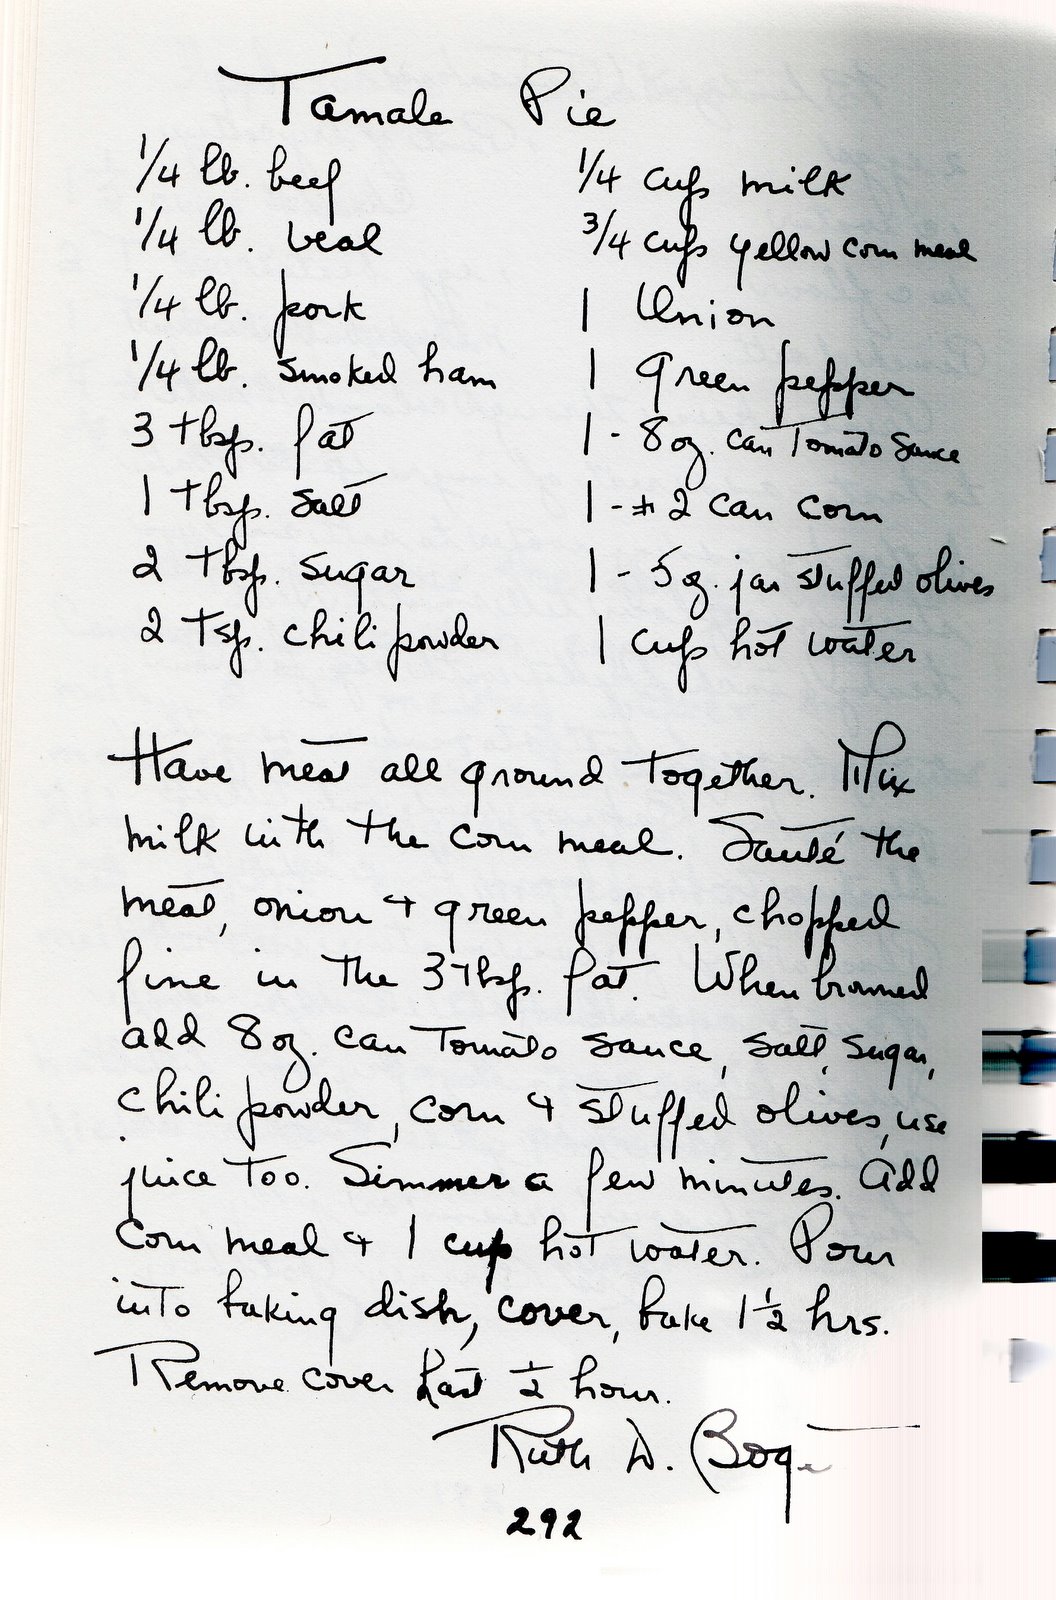 Tamale Pie
1/4 lb. beef
1/4 lb. veal
1/4 lb. pork
1/4 lb. smoked ham
3 tbsp. fat
1 tbsp. salt
2 tbsp. sugar
2 tsp. chili powder
1/4 cups milk
3/4 cups yellow corn meal
1 Onion
1 green pepper
1 - 8 oz. can Tomato Sauce
1 - # 2 can corn
1 - 5 oz. jar stuffed olives
1 cups hot water
Have meat all ground together. Mix
milk with the corn meal. Sauté the
meat, onion + green pepper, chopped
fine in the 3 tbsp. fat. When browned
add 8 oz. can Tomato sauce, salt, sugar,
chili powder, corn + stuffed olives, use
juice too. Simmer a few minutes. Add
corn meal + 1 cup hot water. Pour
into baking dish, cover, bake 1 1/2 hrs.
Remove cover last 1/2 hour.
Ruth D.
292